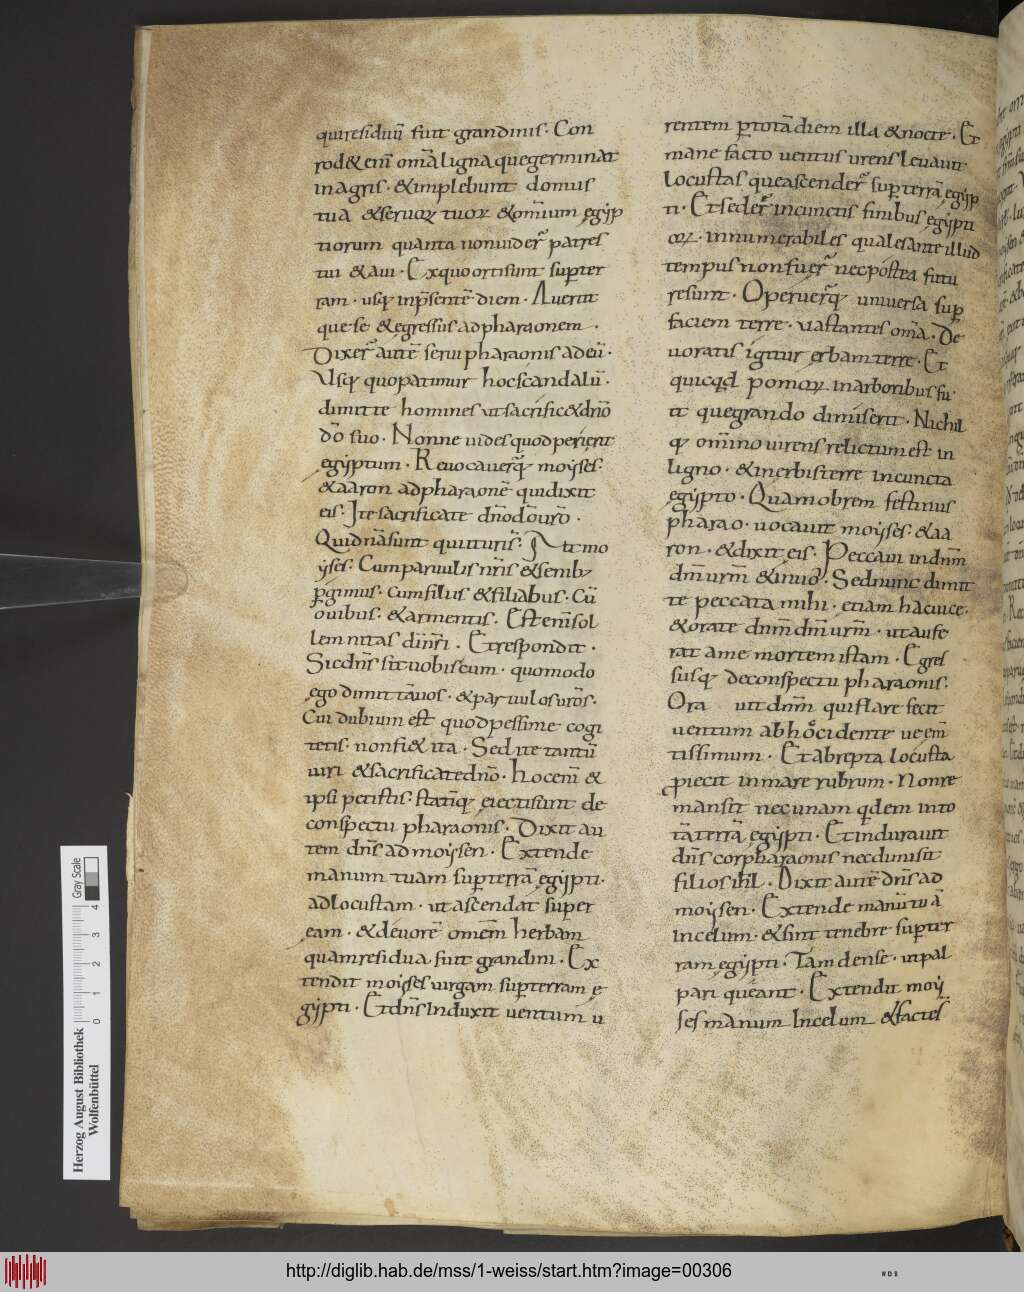 qui residuũ fuit grandinis · Con
rod& enĩ om̃a ligna que germinat
in agris · & implebunt domus
tua & seruoꝝ tuoꝝ & omĩum egyp
tiorum quanta non uider̃ patres
tui & aui · Ex quo orti sunt super
ram · usq; in p̃sentẽ diem · Auertit
que se & egressus a d pharaonem ·
Dixer̃ autẽ serui pharaonis ad eũ ·
Vsq; quo patimur hoc scandalũ ·
dimitte homines ut sacrific& dñō
dõ suo · Nonne uides quod perierit
egyptum · Reuocauerq̃; moyses ·
& aaron ad pharaonẽ qui dixit
eis · Ite sacrificate dño dõ ur̃o ·
Quid nã sunt qui ituri s̃ · Ait mo
yses · Cum paruulis nr̃is & senib;
ꝑgimus · cum filiis & filiabus · Cũ
ouibus · & armentis · Est enĩ sol
lemnitas dñi nr̃i · Et respondit ·
Sic dñs sit uobiscum · quomodo
ego dimittã uos · & paruulos uros̃ ·
Cui dubium est quod pessime cogi
tetis · non fi& ita · Sed ite tantũ
uiri & sacrificate dñō · hoc enĩ &
ipsi petistis · statĩq; eiecti sunt de
conspectu pharaonis · Dixit au
tem dñs ad moysen · Extende
manum tuam sup terrã egypti ·
ad locustam · ut ascendat super
eam · & deuorẽ omẽm herbam
quam residua fuit grandini · Ex
tendit moyses uirgam sup terram e
gypti · Et dñs induxit uentum u
rentem ꝑ totã diem illa & nocte · Et
mane facto uentus urens leuauit
locustas que ascender̃ sup terrã egyp
ti · Et seder̃ in cunctis finibus egypti
oꝝ · innumerabiles quales ante illud
tempus non fuer̃ nec postea futu
re sunt · Operuerq̃; uniuersa sup
faciem terre · uastantes om̃a · De
uoratis igitur erbam terre · Et
quicq̃d pomoꝝ in arboribus fu ·
it que grando dimiserit · Nichil
q; omnino uirens relictum est in
ligno · & in erbis terre in cuncta
egypto · Quam obrem festinus
pharao · uocauit moyses · & aa
ron · & dixit eis · Peccaui in dñm
dm̃ urm̃ & in uos̃ · Sed nunc dimit
te peccata mihi · etiam hac uice ·
& orate dnm̃ dm̃ urm̃ · ut aufe
rat a me mortem istam · Egres
susq; de conspectu pharaonis ·
Ora uit dnm̃ qui flare fecit
uentum ab hocidente ue em̃
tissimum · Et abrepta locusta
proiecit in mare rubrum · Non re
mansit nec unam qdem in to
tã terrã egypti · Et indurauit
dñs cor pharaonis nec dimisit
filios isrl̃ · Dixit autẽ dñs ad
moysen · Extende manũ tuã
in celum · & sint tenebre sup ter
ram egypti · Tam dense · ut pal
pari queant · Extendit moy
ses manum in celum & factes̃
Herzog August Bibliothek
Wolfenbüttel
0 1 2 3 4
Gray Scale
http://diglib.hab.de/mss/1-weiss/start.htm?image=00306